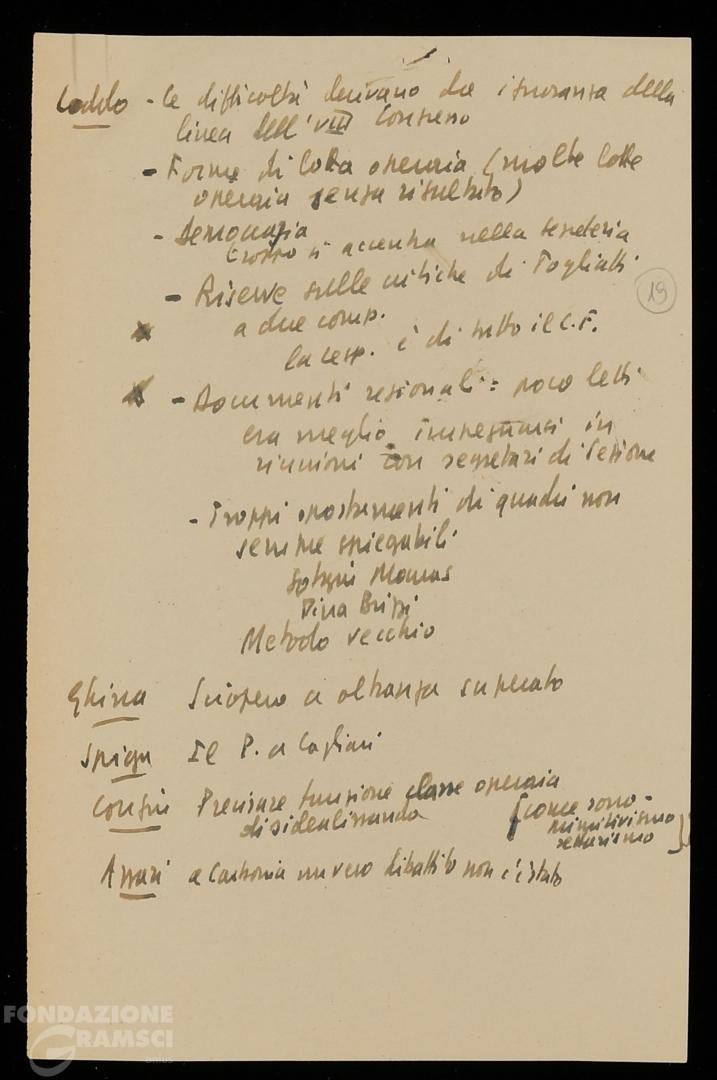 Loddo - Le difficoltà derivano da ignoranza della
linea dell'VIII Congresso
- Forme di lotta operaia (molte lotte
operaia senza risultato)
- Democrazia
troppo si accentra nella segreteria
- Riserve sulle critiche di Togliatti
a due comp.
19
la resp. è di tutto il C.F.
- Documenti regionali = poco letti
era meglio impegnarsi in
riunioni con segretari di Sezione
- Troppi spostamenti di quadri non
sempre spiegabili
Sotgiu
Pina
Metodo vecchio
Ghirra Sciopero a oltranza superato
Spiga Il P. a Cagliari
Congiu Precisare funzione classe operaia
disidealizzando
[come sono -
primitivismo
settarismo]
a Carbonia un vero dibattito non c'è stato
FONDAZIONE
GRAMSCI
onlus